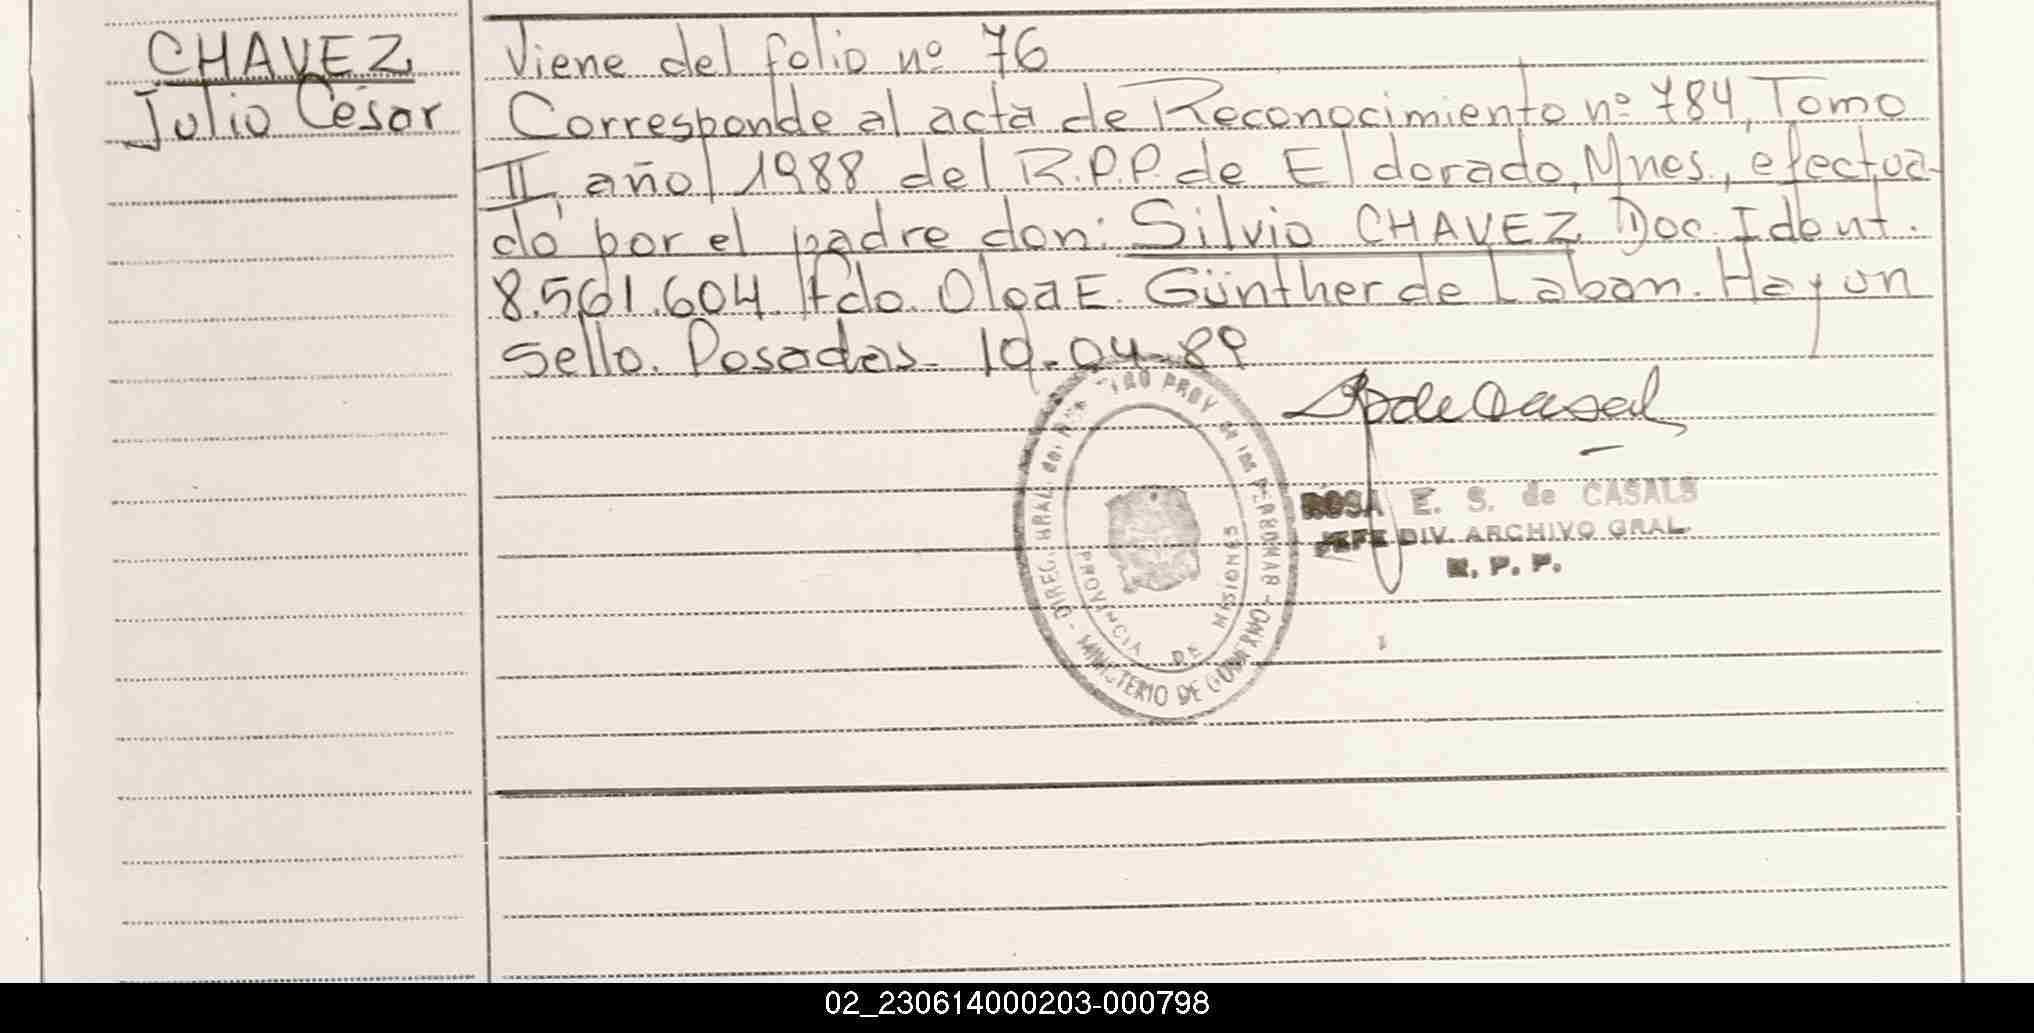 CHAVEZ
Julio César
Viene del folio nº 76
Corresponde al acta de Reconocimiento nº 784, Tomo
II año 1988 del R.P.P. de Eldorado, Mnes., efectua-
do por el padre don: Silvio CHAVEZ Doc. Ident.
8.561.604. Fdo. Olga E. Günther de Laban. Hay un
sello. Posadas 19-04-89
ROSA E. S. de CASALS
JEFE DIV. ARCHIVO GRAL.
R. P. P.
DIREC. GRAL. del PROV de las PERSONAS - MINISTERIO DE GOBIERNO
PROVINCIA DE MISIONES
02_230614000203-000798